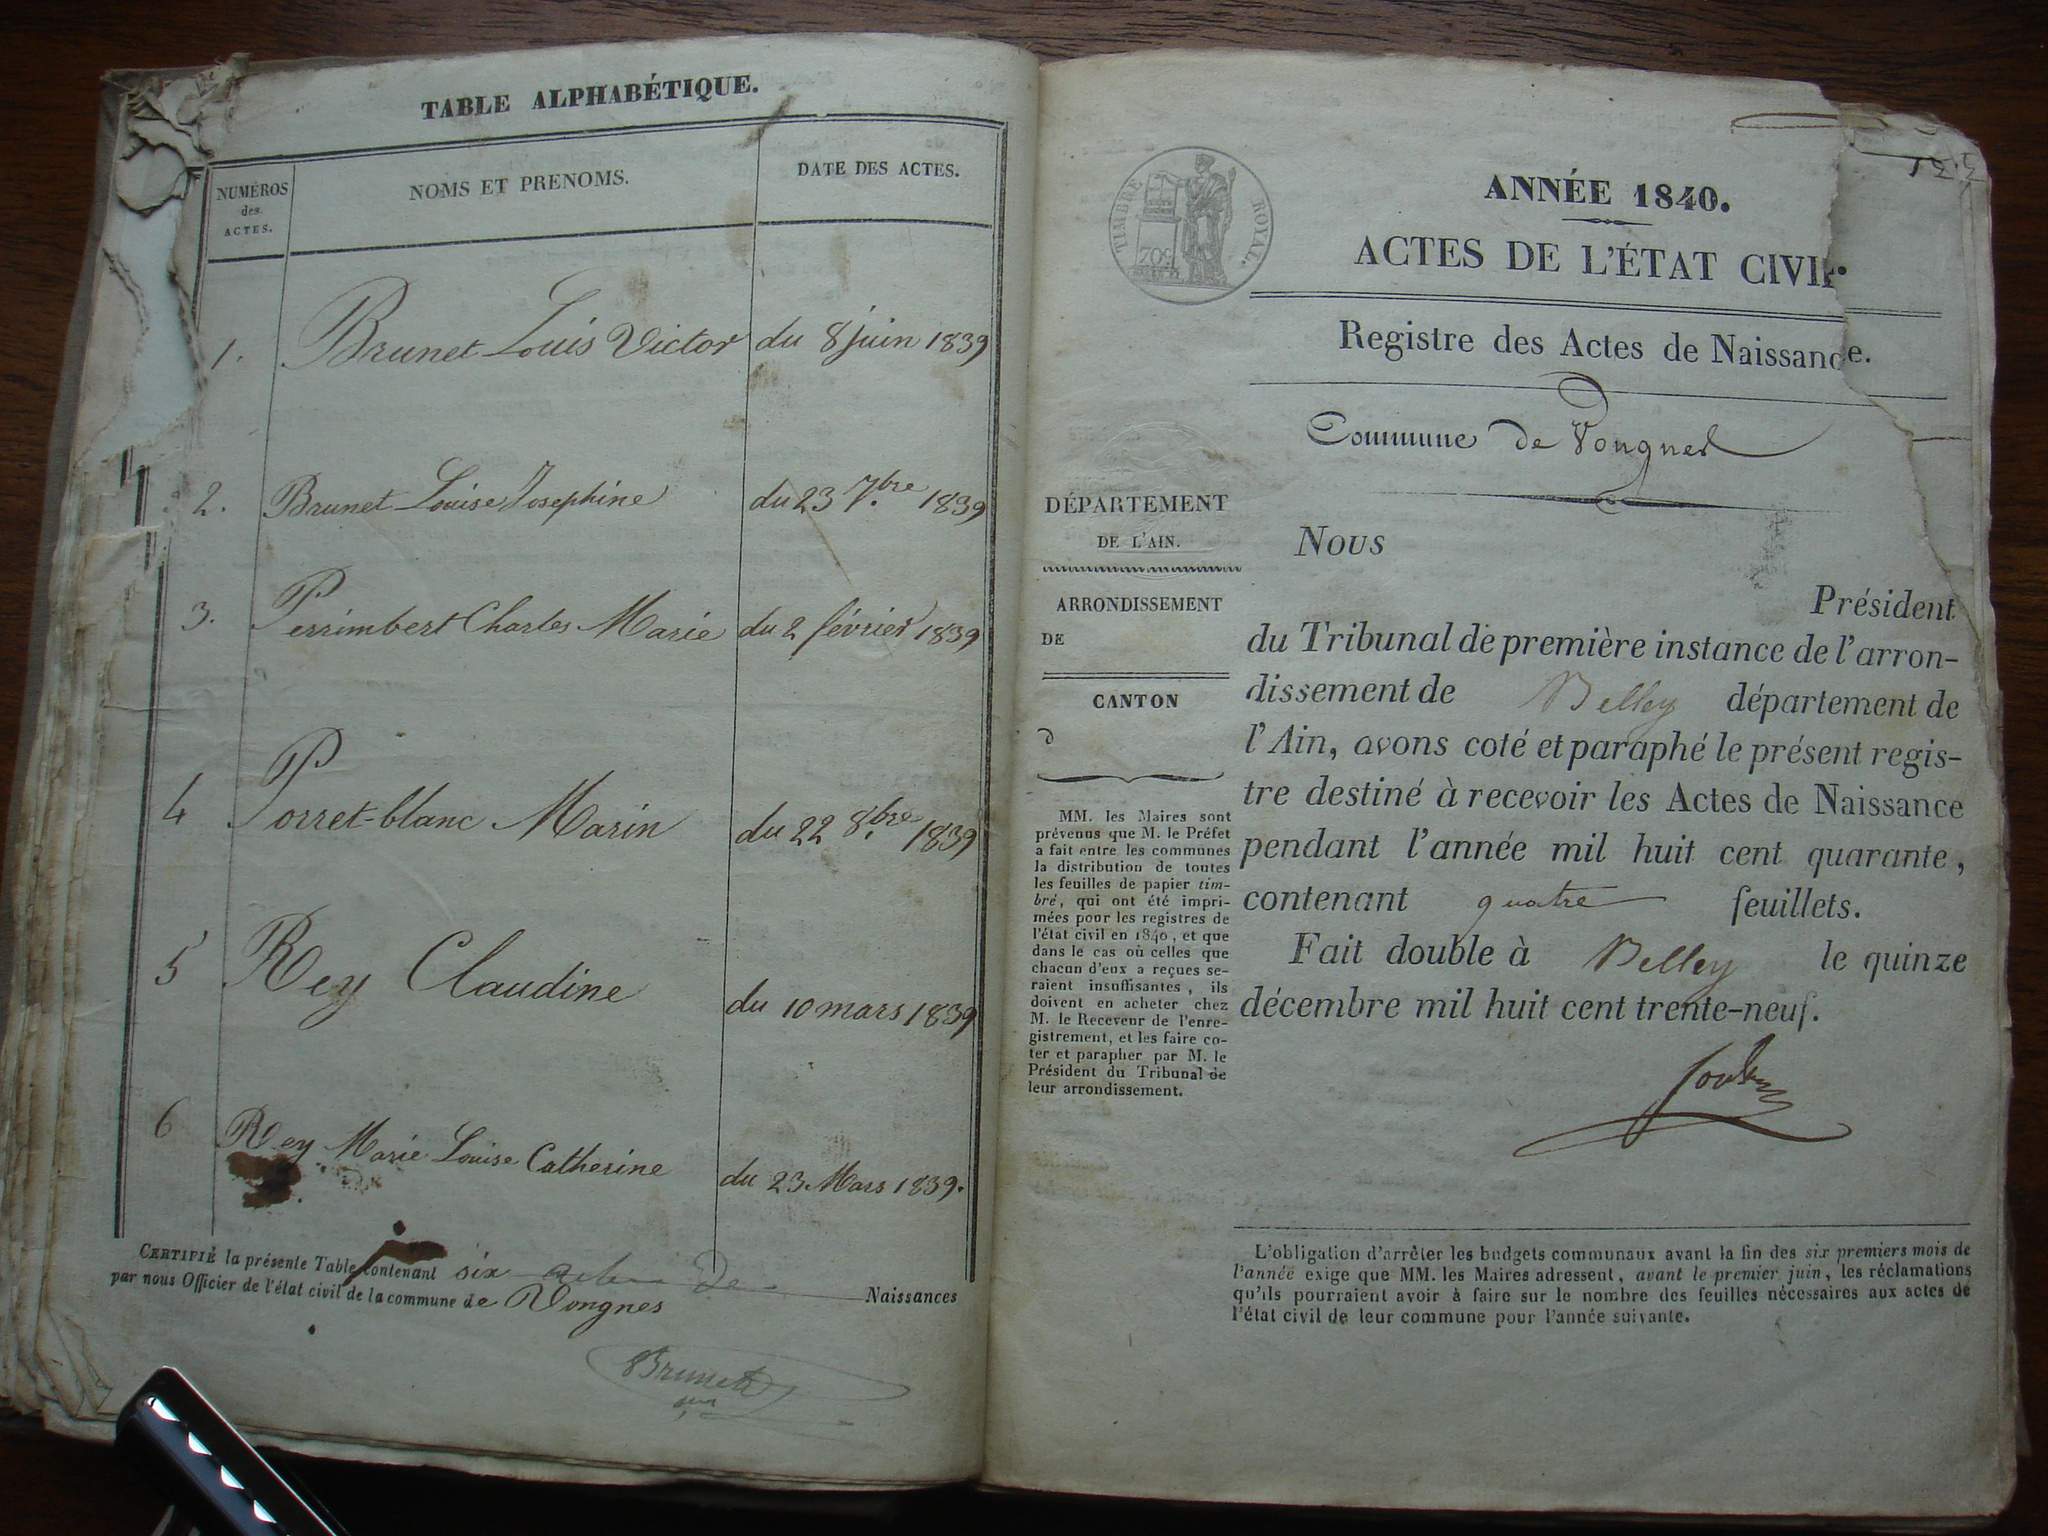 TABLE ALPHABÉTIQUE.
NUMÉROS
des
ACTES.
NOMS ET PRENOMS.
DATE DES ACTES.
1. Brunet Louis Victor du 8 juin 1839
2. Brunet Louise Josephine du 23 7.bre 1839
3. Perrimbert Charles Marie du 2 février 1839
4 Porret-blanc Marin du 22 8.bre 1839
5 Rey Claudine du 10 mars 1839
6 Rey Marie Louise Catherine du 23 Mars 1839.
CERTIFIÉ la présente Table contenant six actes de Naissances
par nous Officier de l'état civil de la commune de Vongnes
Brunet
TIMBRE ROYAL.
70c
ANNÉE 1840.
ACTES DE L'ÉTAT CIVIL.
Registre des Actes de Naissance.
Commune de Vongnes
DÉPARTEMENT
DE L'AIN.
ARRONDISSEMENT
DE
CANTON
d
MM. les Maires sont
prévenus que M. le Préfet
a fait entre les communes
la distribution de toutes
les feuilles de papier tim-
bré, qui ont été impri-
mées pour les registres de
l'état civil en 1840, et que
dans le cas où celles que
chacun d'eux a reçues se-
raient insuffisantes, ils
doivent en acheter chez
M. le Receveur de l'enre-
gistrement, et les faire co-
ter et parapher par M. le
Président du Tribunal de
leur arrondissement.
Nous
Président
du Tribunal de première instance de l'arron-
dissement de Belley département de
l'Ain, avons coté et paraphé le présent regis-
tre destiné à recevoir les Actes de Naissance
pendant l'année mil huit cent quarante,
contenant quatre feuillets.
Fait double à Belley le quinze
décembre mil huit cent trente-neuf.
L'obligation d'arrêter les budgets communaux avant la fin des six premiers mois de
l'année exige que MM. les Maires adressent, avant le premier juin, les réclamations
qu'ils pourraient avoir à faire sur le nombre des feuilles nécessaires aux actes de
l'état civil de leur commune pour l'année suivante.